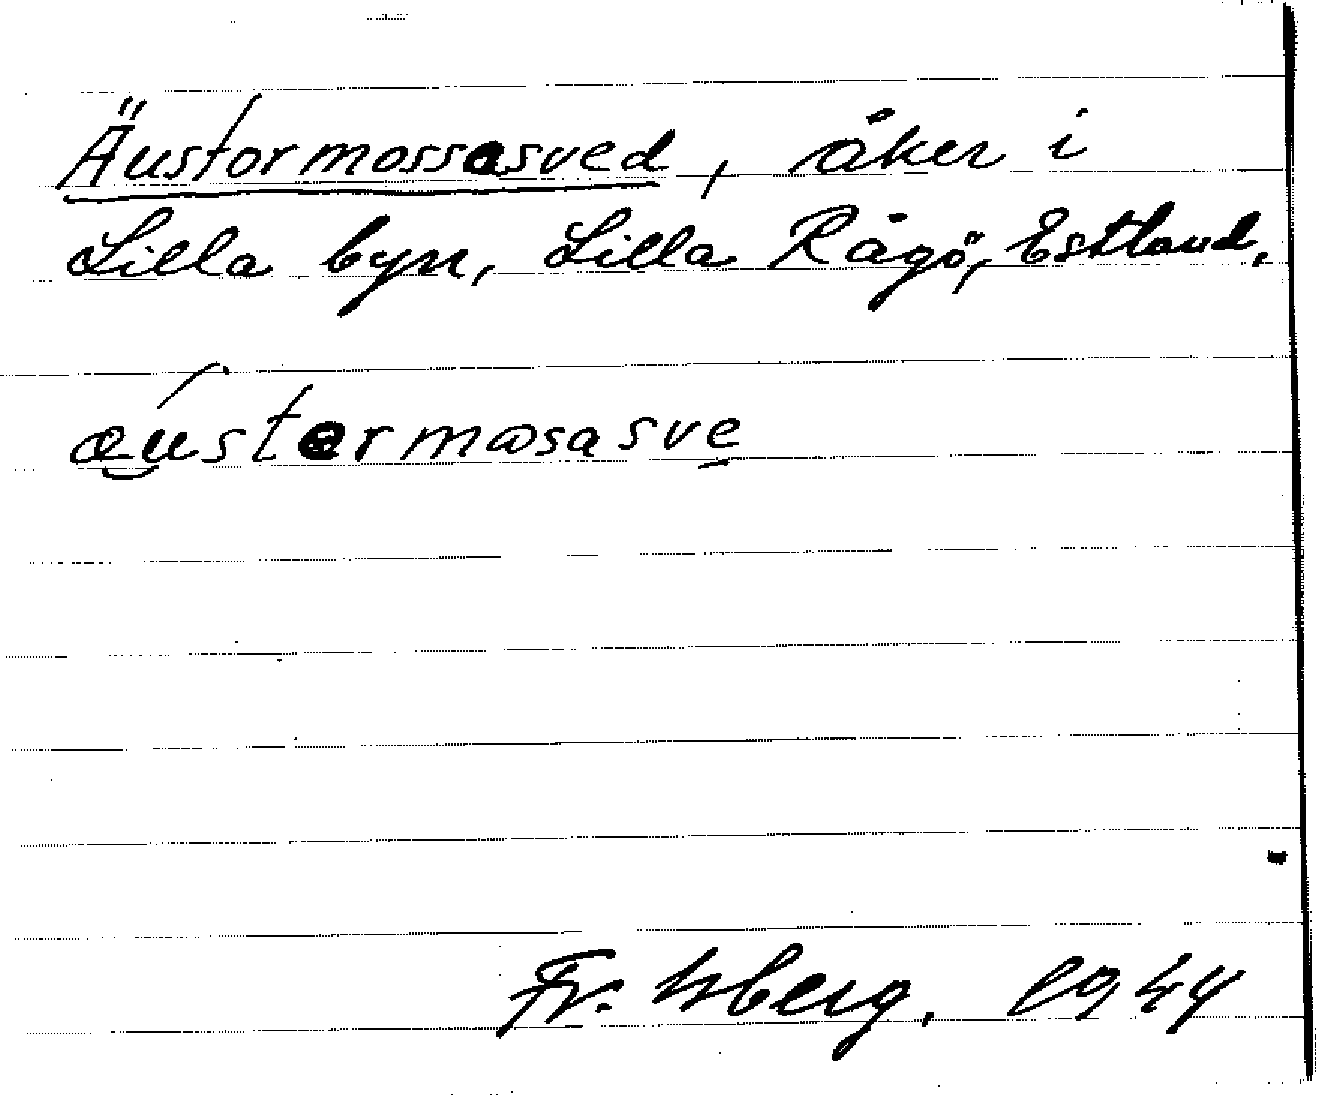 Äustormossasved, åker i
Lilla byn, Lilla Rågö, Estland.
æ̀u̯stormosasvẹ
Fr. Isberg, 1944